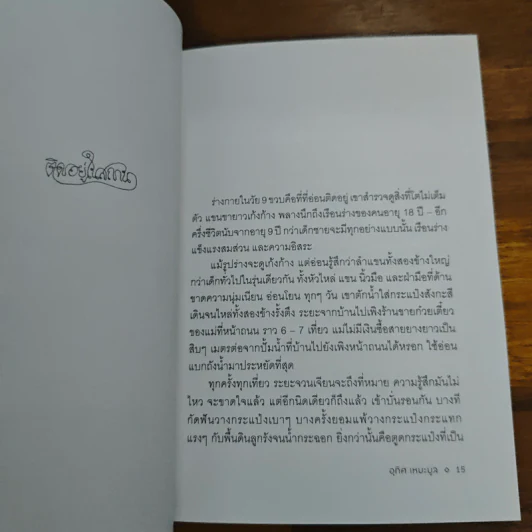 ติดอยู่ในถาน
ร่างกายในวัย 9 ขวบคือที่ที่อ่อนติดอยู่ เขาสำรวจดูสิ่งที่โตไม่เต็ม
ตัว แขนขายาวเก้งก้าง พลางนึกถึงเรือนร่างของคนอายุ 18 ปี – อีก
ครึ่งชีวิตนับจากอายุ 9 ปี กว่าเด็กชายจะมีทุกอย่างแบบนั้น เรือนร่าง
แข็งแรงสมส่วน และความอิสระ
แม้รูปร่างจะดูเก้งก้าง แต่อ่อนรู้สึกว่าลำแขนทั้งสองข้างใหญ่
กว่าเด็กทั่วไปในรุ่นเดียวกัน ทั้งหัวไหล่ แขน นิ้วมือ และฝ่ามือที่ด้าน
ขาดความนุ่มเนียน อ่อนโยน ทุกๆ วัน เขาตักน้ำใส่กระแป๋งสังกะสี
เดินจนไหล่ทั้งสองข้างรั้งตึง ระยะจากบ้านไปเพิงร้านขายก๋วยเตี๋ยว
ของแม่ที่หน้าถนน ราว 6 – 7 เที่ยว แม่ไม่มีเงินซื้อสายยางยาวเป็น
สิบๆ เมตรต่อจากปั้มน้ำที่บ้านไปยังเพิงหน้าถนนได้หรอก ใช้อ่อน
แบกถังน้ำมาประหยัดที่สุด
ทุกครั้งทุกเที่ยว ระยะจวนเจียนจะถึงที่หมาย ความรู้สึกมันไม่
ไหว จะขาดใจแล้ว แต่อีกนิดเดียวก็ถึงแล้ว เข้าบั่นรอนกัน บางที
กัดฟันวางกระแป๋งเบาๆ บางครั้งยอมแพ้วางกระแป๋งกระแทก
แรงๆ กับพื้นดินลูกรังจนน้ำกระฉอก ยิ่งกว่านั้นคือตูดกระแป๋งที่เป็น
อุทิศ เหมะมูล ๐ 15